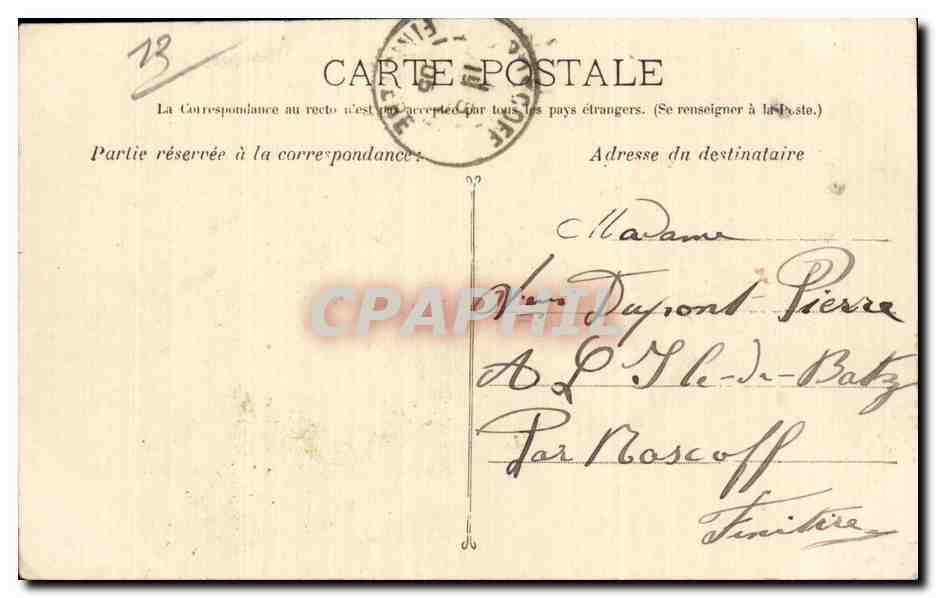 13
CARTE POSTALE
La Correspondance au recto n'est pas acceptée par tous les pays étrangers. (Se renseigner à la Poste.)
Partie réservée à la correspondance:
Adresse du destinataire
ROSCOFF
FINISTERE
05
Madame
Dupont Pierre
A L Ile-de-Batz
Par Roscoff
Finitire
CPAPHIL